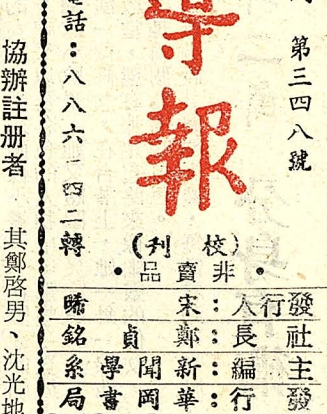 第三四八號
導報
(校刊)
•非賣品•
發行人：宋晞
社長：鄭貞銘
主編：新聞學系
發行：華岡書局
話：八八六一四二轉
協辦註册者 其鄭啓男、沈光地